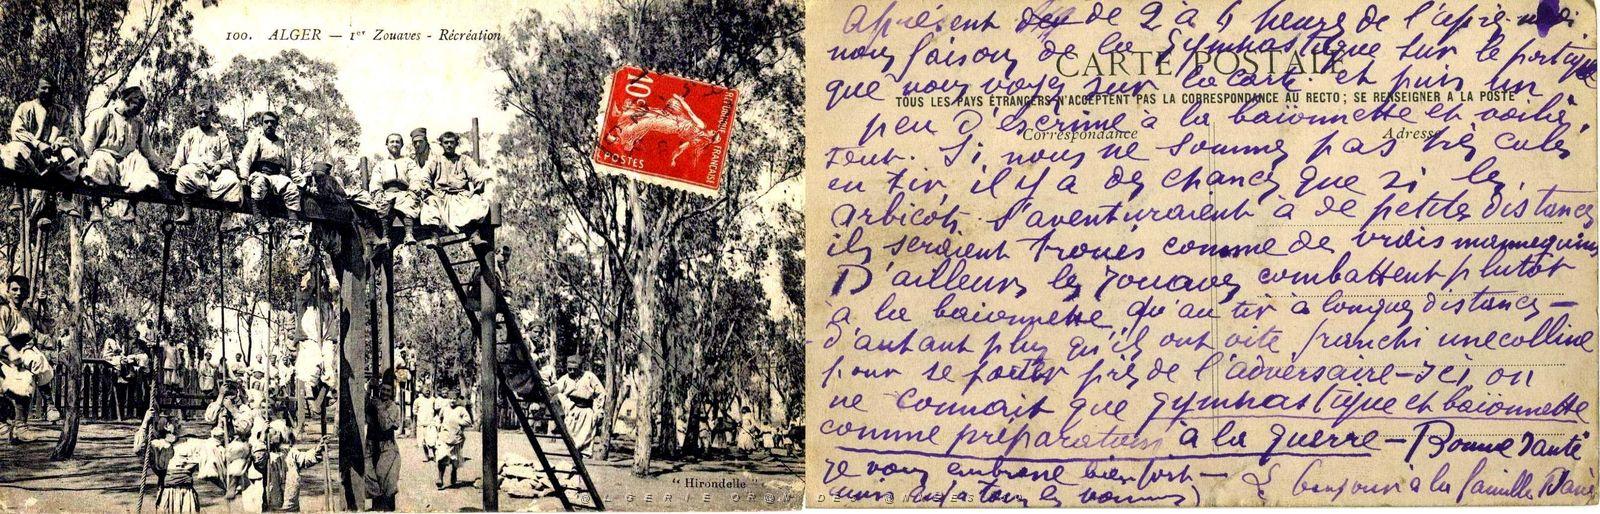 100. ALGER — 1er Zouaves - Récréation
10c
POSTES
REPUBLIQUE FRANÇAISE
"Hirondelle"
CARTE POSTALE
TOUS LES PAYS ÉTRANGERS N'ACCEPTENT PAS LA CORRESPONDANCE AU RECTO ; SE RENSEIGNER A LA POSTE
Correspondance
Adresse
Aprésent de 2 à 4 heure de l'aprè-midi
nous faison de la gymnastique sur le portique
que vous voyez sur la carte. et puis un
peu d'escrime à la baionnette et voilà
tout. Si nous ne sommes pas très calés
en tir, il y a des chances que si les
arbicots s'aventuraient à de petites distances
ils seraient troués comme de vrais mannequins
D'ailleurs les zouaves combattent plutôt
à la baionnette qu'au tir à longues distances —
d'autant plus qu'ils ont vite franchi une colline
pour se porter près de l'adversaire — Ici on
ne connait que gymnastique et baionnette
comme préparation à la guerre — Bonne santé
je vous embrasse bien fort —
bonjour à la famille